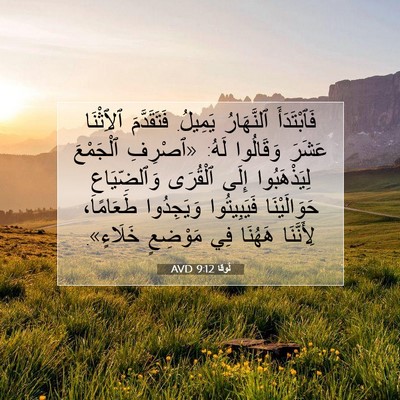 فَٱبْتَدَأَ ٱلنَّهَارُ يَمِيلُ. فَتَقَدَّمَ ٱلِٱثْنَا
عَشَرَ وَقَالُوا لَهُ: «ٱصْرِفِ ٱلْجَمْعَ
لِيَذْهَبُوا إِلَى ٱلْقُرَى وَٱلضِّيَاعِ
حَوَالَيْنَا فَيَبِيتُوا وَيَجِدُوا طَعَامًا،
لِأَنَّنَا هَهُنَا فِي مَوْضِعٍ خَلَاءٍ»
لُوقا 9:12 AVD